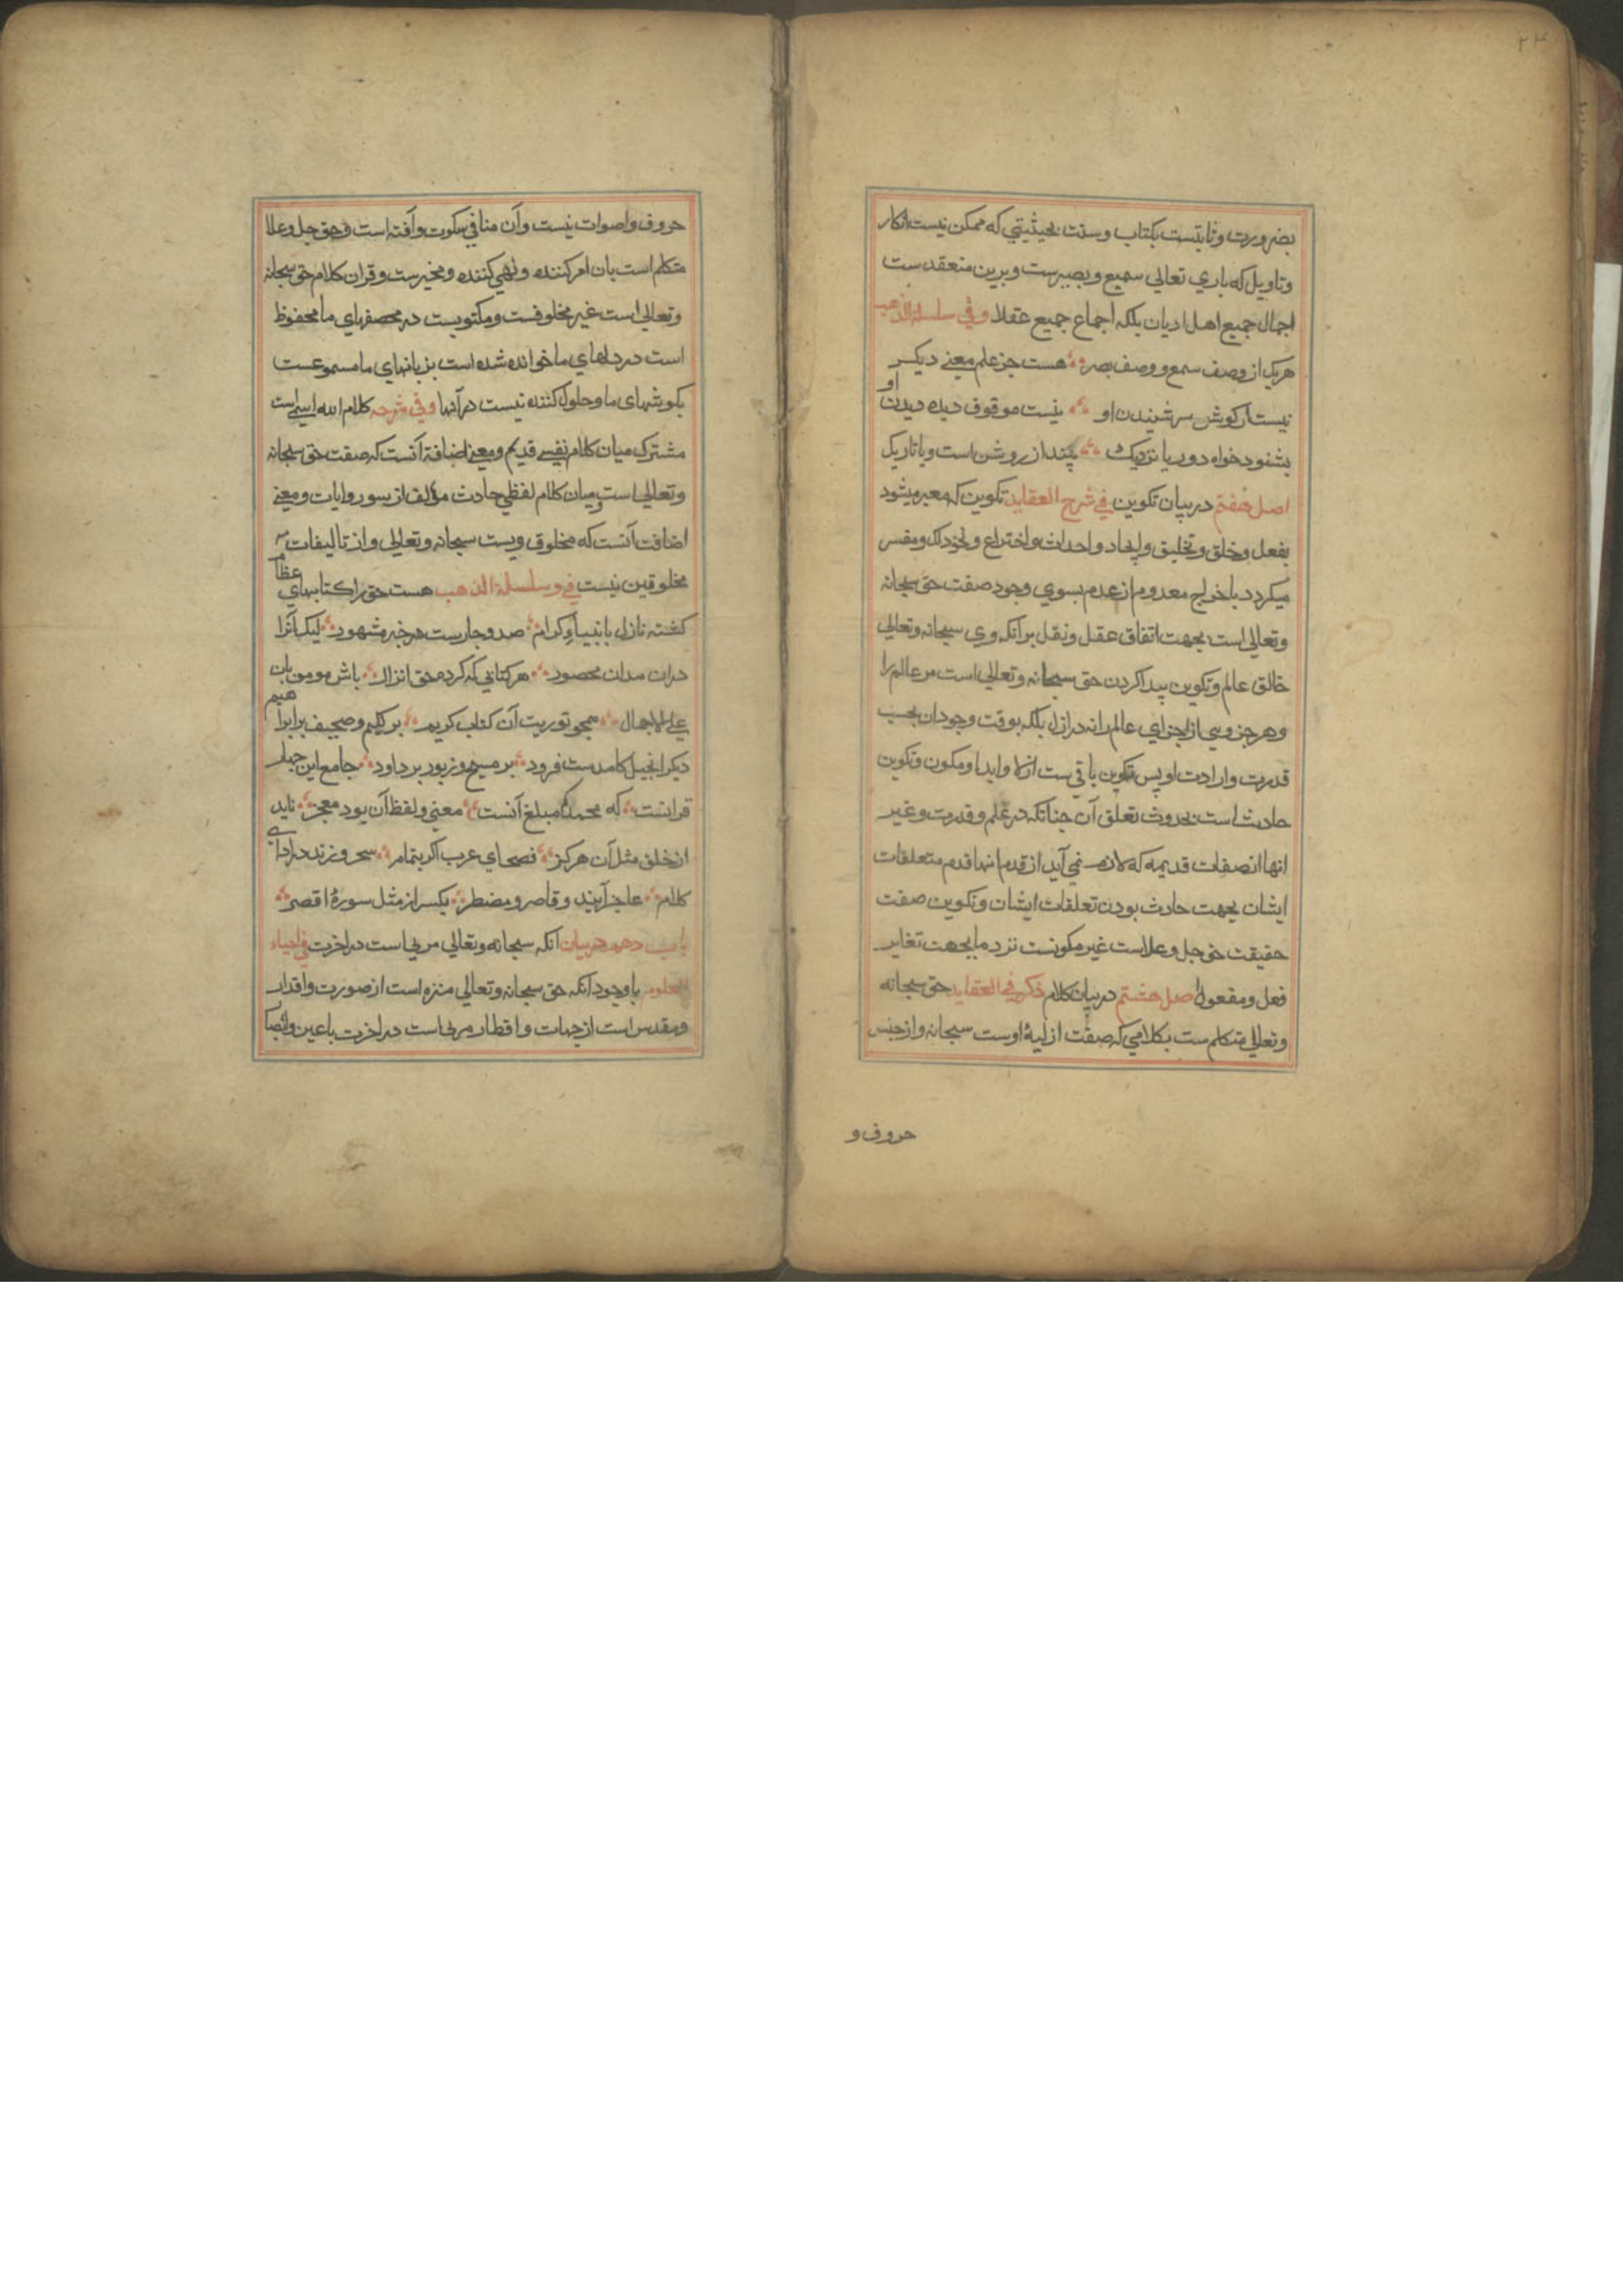 ۲۴
بضرورت وثابتست بکتاب وسنت بحیثیتي که ممکن نیست انکار
وتاویل که باري تعالي سمیع وبصیرست وبرین منعقد ست
اجمال جمیع اهل ادیان بلکه اجماع جمیع عقلا وفي سلسلة الذهب
هریک از وصف سمع ووصف بصر هست جز علم معنے دیکر
نیست از کوش سر شنیدن او نیست موقوف دیده دیدن او
بشنود خواه دور یا نزدیک بیند از روشن است ویا تاریک
اصل هفتم در بیان تکوین في شرح العقاید تکوین که معبر میشود
بفعل وخلق وتخلیق وایجاد واحداث واختراع ونحو ذلک ومفسر
میکردد باخراج معدوم از عدم بسوي وجود صفت حق سبحانه
وتعالي است بجهت اتفاق عقل ونقل برانکه وي سبحانه وتعالي
خالق عالم وتکوین پیدا کردن حق سبحانه وتعالي است مر عالم را
وهر جزوي از اجزاي عالم را نه در ازل بلکه بوقت وجود ان بحسب
قدرت وارادت او پس تکوین باقي ست ازلا وابدا ومکون وتکوین
حادث است بحدوث تعلق آن چنانکه در علم وقدرت وغیر
انها از صفات قدیمه که لازم نمي آید از قدم انها قدم متعلقات
ایشان بجهت حادث بودن تعلقات ایشان وتکوین صفت
حقیقت حق جل وعلاست غیر مکونست نزد ما بجهت تغایر
فعل ومفعول اصل هشتم در بیان کلام ذکر في العقاید حق سبحانه
وتعالي متکلم ست بکلامي که صفت ازلیهٔ اوست سبحانه واز جنس
حروف و
حروف واصوات نیست وآن منافي سکوت وآفته است وحق جل وعلا
متکلم است بان امر کننده ونهي کننده ومخبر ست وقران کلام حق سبحانه
وتعالي است غیر مخلوقست ومکتوبست در مصحفهاي ما محفوظ
است در دلهاي ما خوانده شده است بزبانهاي ما مسموعست
بکوشهاي ما وحلول کننده نیست در آنها وفي شرحه کلام الله اسمی است
مشترک میان کلام نفسے قدیم ومعنے اضافة آنست که صفت حق سبحانه
وتعالي است ومیان کلام لفظي حادث مؤلف از سور وایات ومعنے
اضافت آنست که مخلوق ویست سبحانه وتعالي واز تالیفات
مخلوقین نیست في وسلسلة الذهب هست حق را کتابهاي عظام
کشته نازل بانبیاء کرام صد وچارست در خبر مشهود لیک آنرا
دران مدان محصود هر کتابي که کرده حق انزال باش مومن بان
علي الاجمال همچو توریت آن کتاب کریم بر کلیم وصحیف بر ابراهیم
دیکر انجیل کامدست فرود بر مسیح وزبور بر داود جامع این چهار
قرانست که محمد مبلغ آنست معنی ولفظ آن بود معجز ناید
از خلق مثل آن هرکز فصحاي عرب اکر بتمام سحر ورزند در اداے
کلام عاجز آیند وقاصر ومضطر یکسر از مثل سورهٔ اقصر
باب دهم در بیان انکه سبحانه وتعالي مرئی است در اخرت في احیاء
العلوم باوجود انکه حق سبحانه وتعالي منزه است از صورت واقدار
ومقدس است از جهات واقطار مرئی است در اخرت باعین وابصار